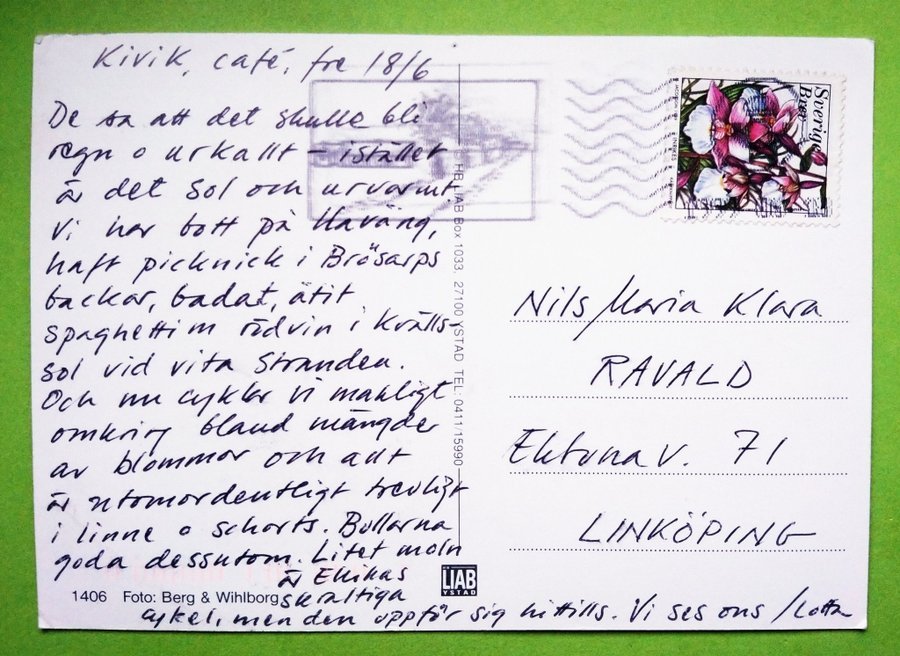 Kivik, café, fre 18/6
De sa att det skulle bli
regn o urkallt – istället
är det sol och urvarmt
Vi har bott på Haväng,
haft picknick i Brösarps
backar, badat, ätit
spaghetti m rödvin i kvälls-
sol vid vita stranden.
Och nu cyklar vi makligt
omkring bland mängder
av blommor och allt
är utomordentligt trevligt
i linne o schorts. Bullarna
goda dessutom. Litet moln
är Ekikas
skraltiga
cykel, men den uppför sig hittills. Vi ses ons /Lotta
1406 Foto: Berg & Wihlborg
HB LJAB Box 1033, 27100 YSTAD TEL: 0411/15990
LJAB
YSTAD
Sverige
Brev
Nils/Maria Klara
RAVALD
Ektunav. 71
LINKÖPING